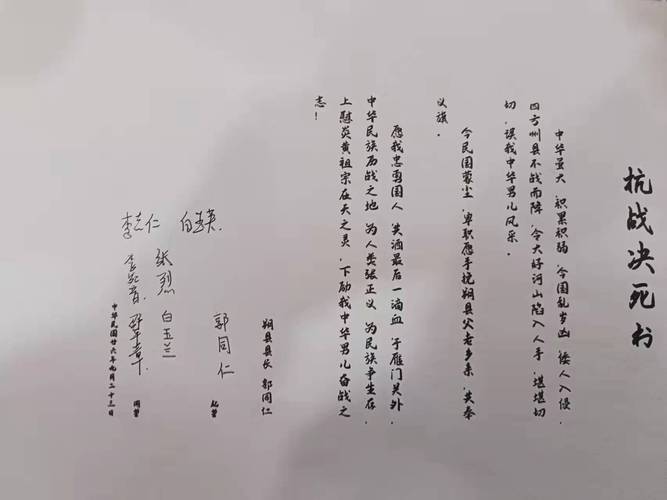 抗战决死书
中华虽大,积累积弱,今国乱岁凶,倭人入侵,
四方州县不战而降,令大好河山陷入人手,堪堪切
切,误我中华男儿风采。
今民国蒙尘,卑职愿手挽朔县父老乡亲,共奉
义旗。
愿我忠勇国人,共洒最后一滴血,于雁门关外,
中华民族历战之地,为人类张正义,为民族争生存,
上慰炎黄祖宗在天之灵,下励我中华男儿奋战之
志!
朔县县长 郭同仁
郭同仁
白玉兰
张烈
中华民国廿六年九月二十三日